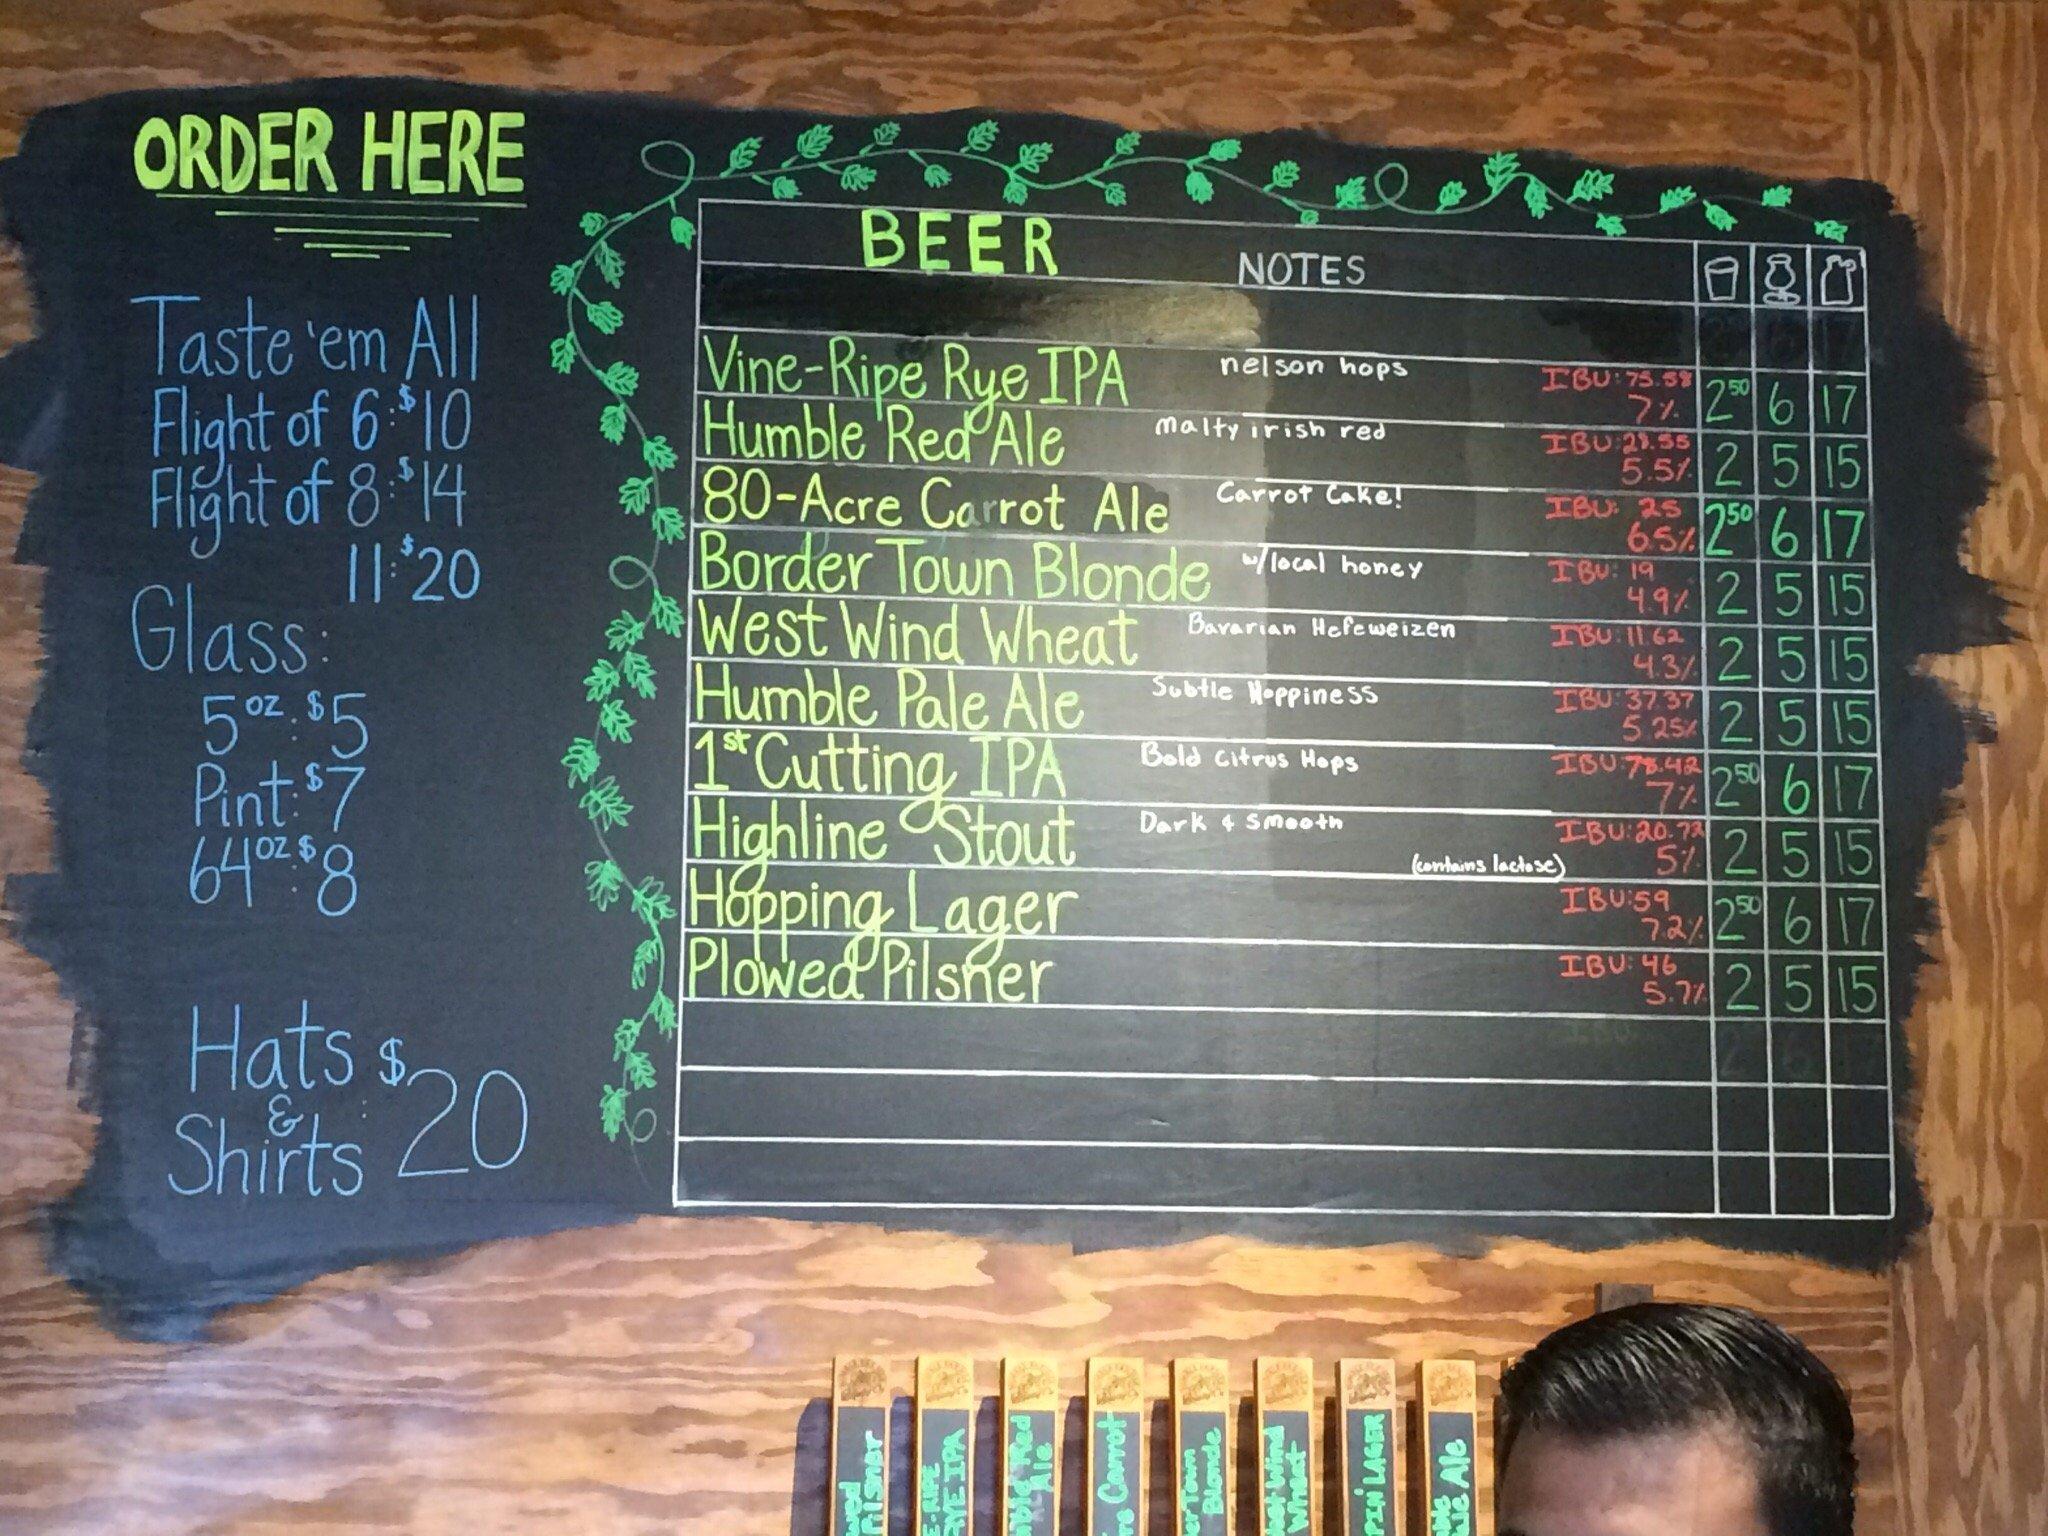 ORDER HERE
Taste 'em All
Flight of 6: $10
Flight of 8: $14
11: $20
Glass:
5oz: $5
Pint: $7
64oz: $8
Hats & Shirts: $20
BEER NOTES
Vine-Ripe Rye IPA nelson hops IBU: 75.58 7% 2.50 6 17
Humble Red Ale Malty irish red IBU: 28.55 5.5% 2 5 15
80-Acre Carrot Ale Carrot Cake! IBU: 25 6.5% 2.50 6 17
Border Town Blonde w/local honey IBU: 19 4.9% 2 5 15
West Wind Wheat Bavarian Hefeweizen IBU: 11.62 4.3% 2 5 15
Humble Pale Ale Subtle Hoppiness IBU: 37.37 5.25% 2 5 15
1st Cutting IPA Bold Citrus Hops IBU: 78.42 7% 2.50 6 17
Highline Stout Dark & Smooth (contains lactose) IBU: 20.72 5% 2 5 15
Hopping Lager IBU: 59 7.2% 2.50 6 17
Plowed Pilsner IBU: 46 5.7% 2 5 15
Red
Ale
Carrot
Town
Blonde
Wind
Wheat
LAGER
Ale